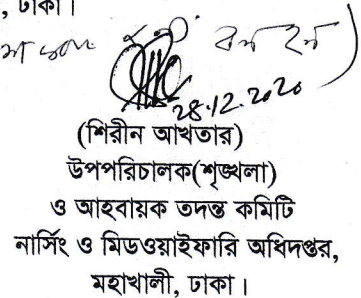 , ঢাকা।
28.12.2020
(শিরীন আখতার)
উপপরিচালক(শৃঙ্খলা)
ও আহবায়ক তদন্ত কমিটি
নার্সিং ও মিডওয়াইফারি অধিদপ্তর,
মহাখালী, ঢাকা।